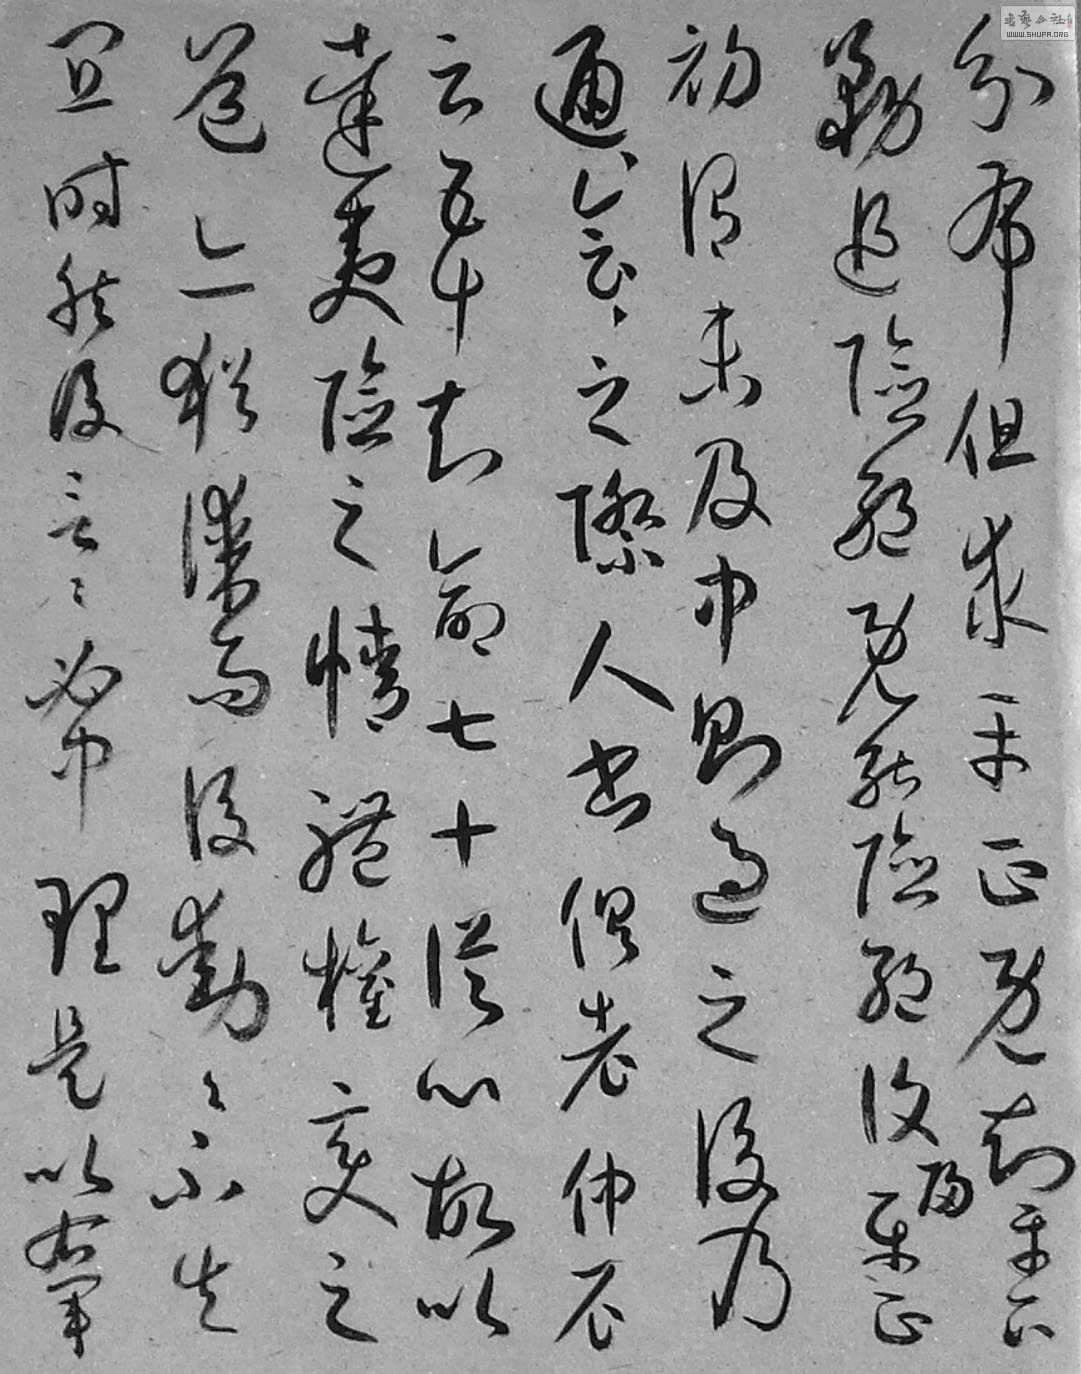 分布但求平正既知平正
務追險絕既能險絕復歸平正
初謂未及中則過之後乃
通會通會之際人書俱老仲尼
云五十知命七十從心故以
達夷險之情體權變之
道亦猶謀而後動動不失
宜時然後言言必中理是以右軍
WWW.SHUFA.ORG